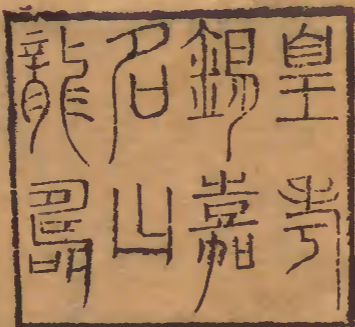 皇考
錫嘉
名山
龍